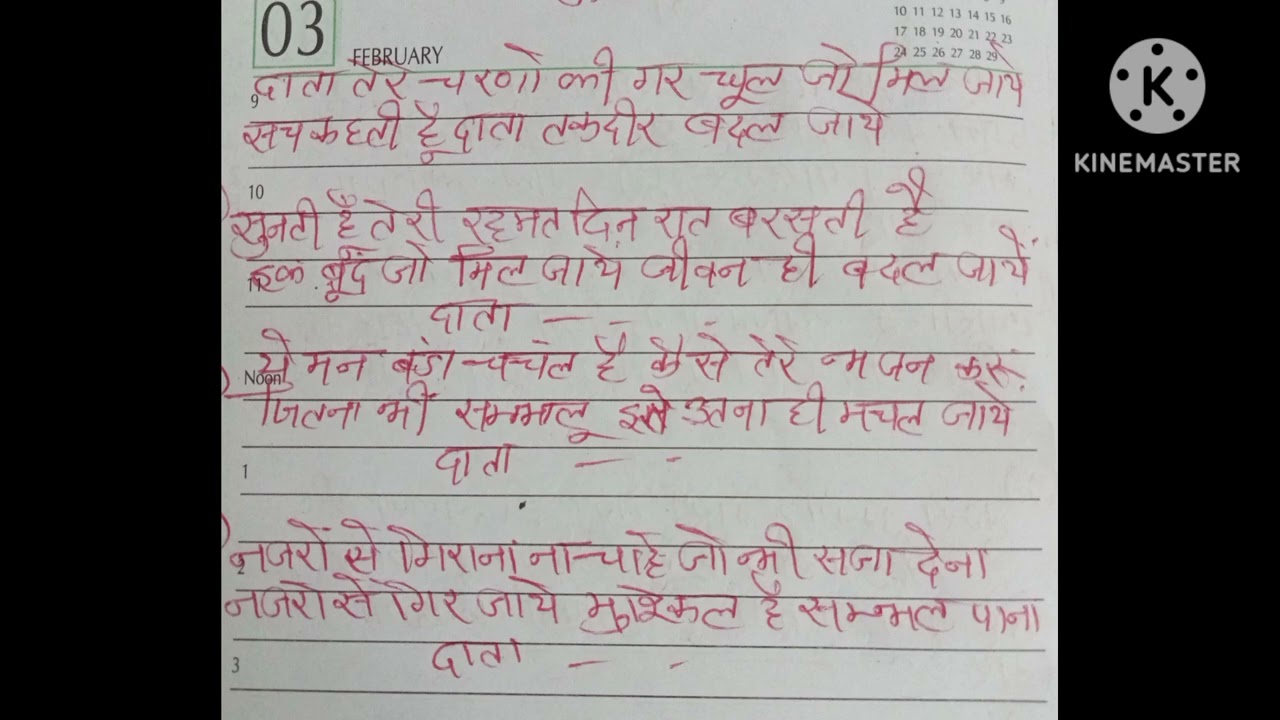 03
FEBRUARY
10 11 12 13 14 15 16
17 18 19 20 21 22 23
24 25 26 27 28 29
दाता तेरे चरणो की गर धूल जो मिल जाये
9
सच कहती हूँ दाता तकदीर बदल जाये
10
सुनती हूँ तेरी रहमत दिन रात बरसती है
इक बूंद जो मिल जाये जीवन ही बदल जायें
दाता — -
ये मन बड़ा चंचल है कैसे तेरे भजन करूं
Noon
जितना भी सम्भालू इसे उतना ही मचल जाये
दाता — -
1
नजरों से गिराना ना चाहे जो भी सजा देना
2
नजरो से गिर जाये मुश्किल है सम्भल पाना
दाता — -
3
K
KINEMASTER